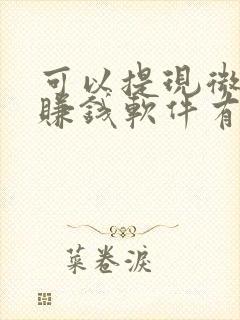 可以提現微
賺錢軟件有
菜卷淚